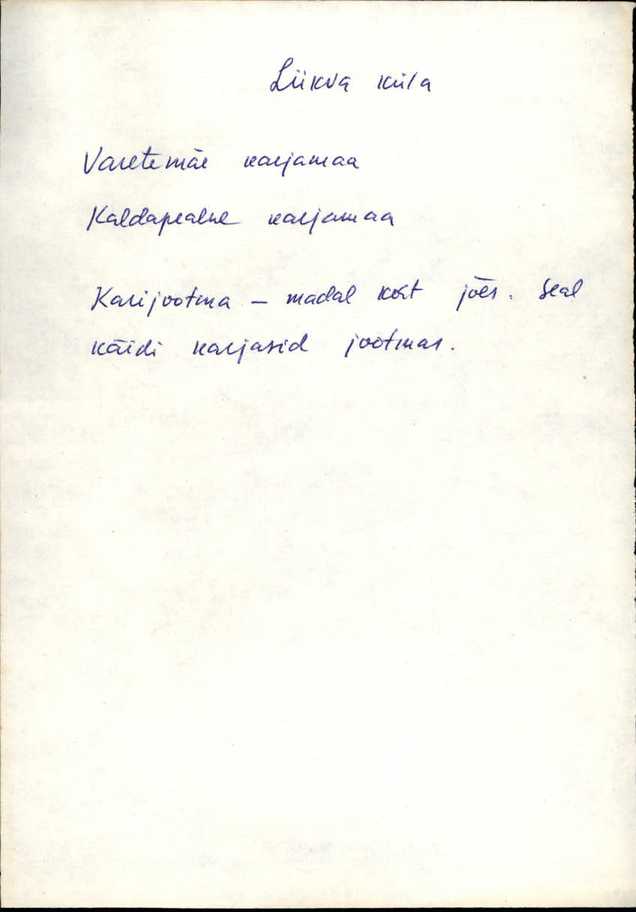 Liikva küla
Varetemäe karjamaa
Kaldapealne karjamaa
Karijootma – madal koht jões. Seal
käidi karjasid jootmas.